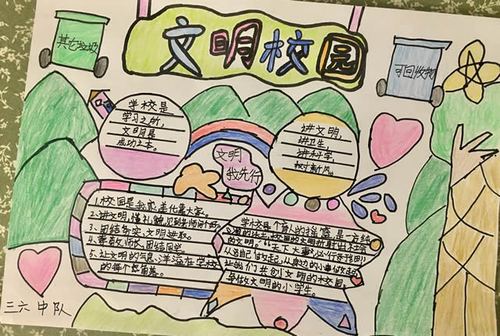 文明校园
其它垃圾
可回收物
学校是
学习之所,
文明是
成功之本。
讲文明,
讲卫生,
讲科学,
树新风。
文明
我先行
1.校园是我家,美化靠大家。
2.讲文明,懂礼貌,见到老师问声好。
3.团结务实,文明进取。
4.尊敬师长,团结同学
5.让文明的气息,洋溢在学校
的每个角落。
学校是个育人的摇篮,是一方
的文明。
从自己做起,从身边的小事做起
让我们共创文明的校园,
争做文明的小学生。
三六中队